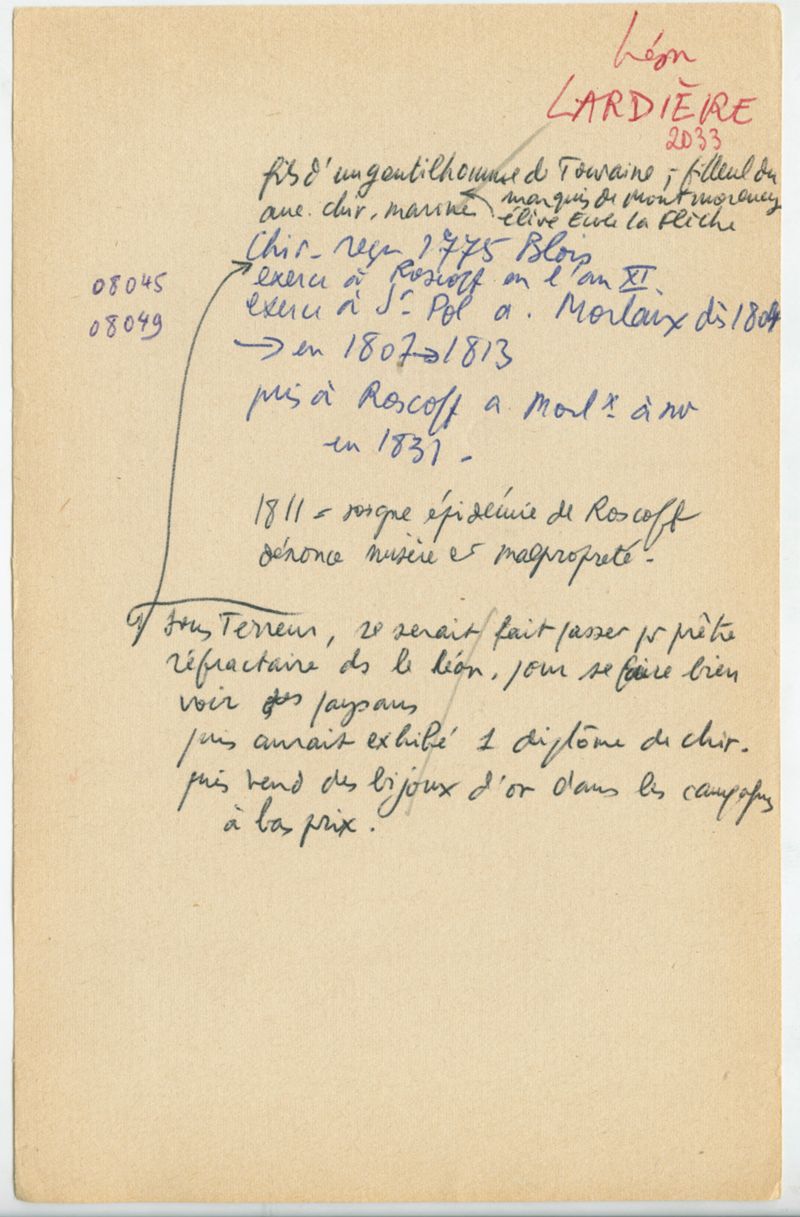 Léon
LARDIÈRE
2033
fils d'un gentilhomme de Touraine ; filleul du
marquis de Montmorency
anc. chir. marine
élève Ecole la Flèche
Chir. reçu 1775 Blois
exerce à Roscoff en l'an XI
08045
exerce à St Pol a. Morlaix dès 1804
08049
→ en 1807 → 1813
puis à Roscoff a. Morlx à nv
en 1831.
1811 = soigne épidémie de Roscoff
dénonce misère et malpropreté.
sous Terreur, se serait fait passer pr prêtre
réfractaire ds le Léon, pour se faire bien
voir des paysans
puis aurait exhibé 1 diplôme de chir.
puis vend des bijoux d'or dans les campagnes
à bas prix.